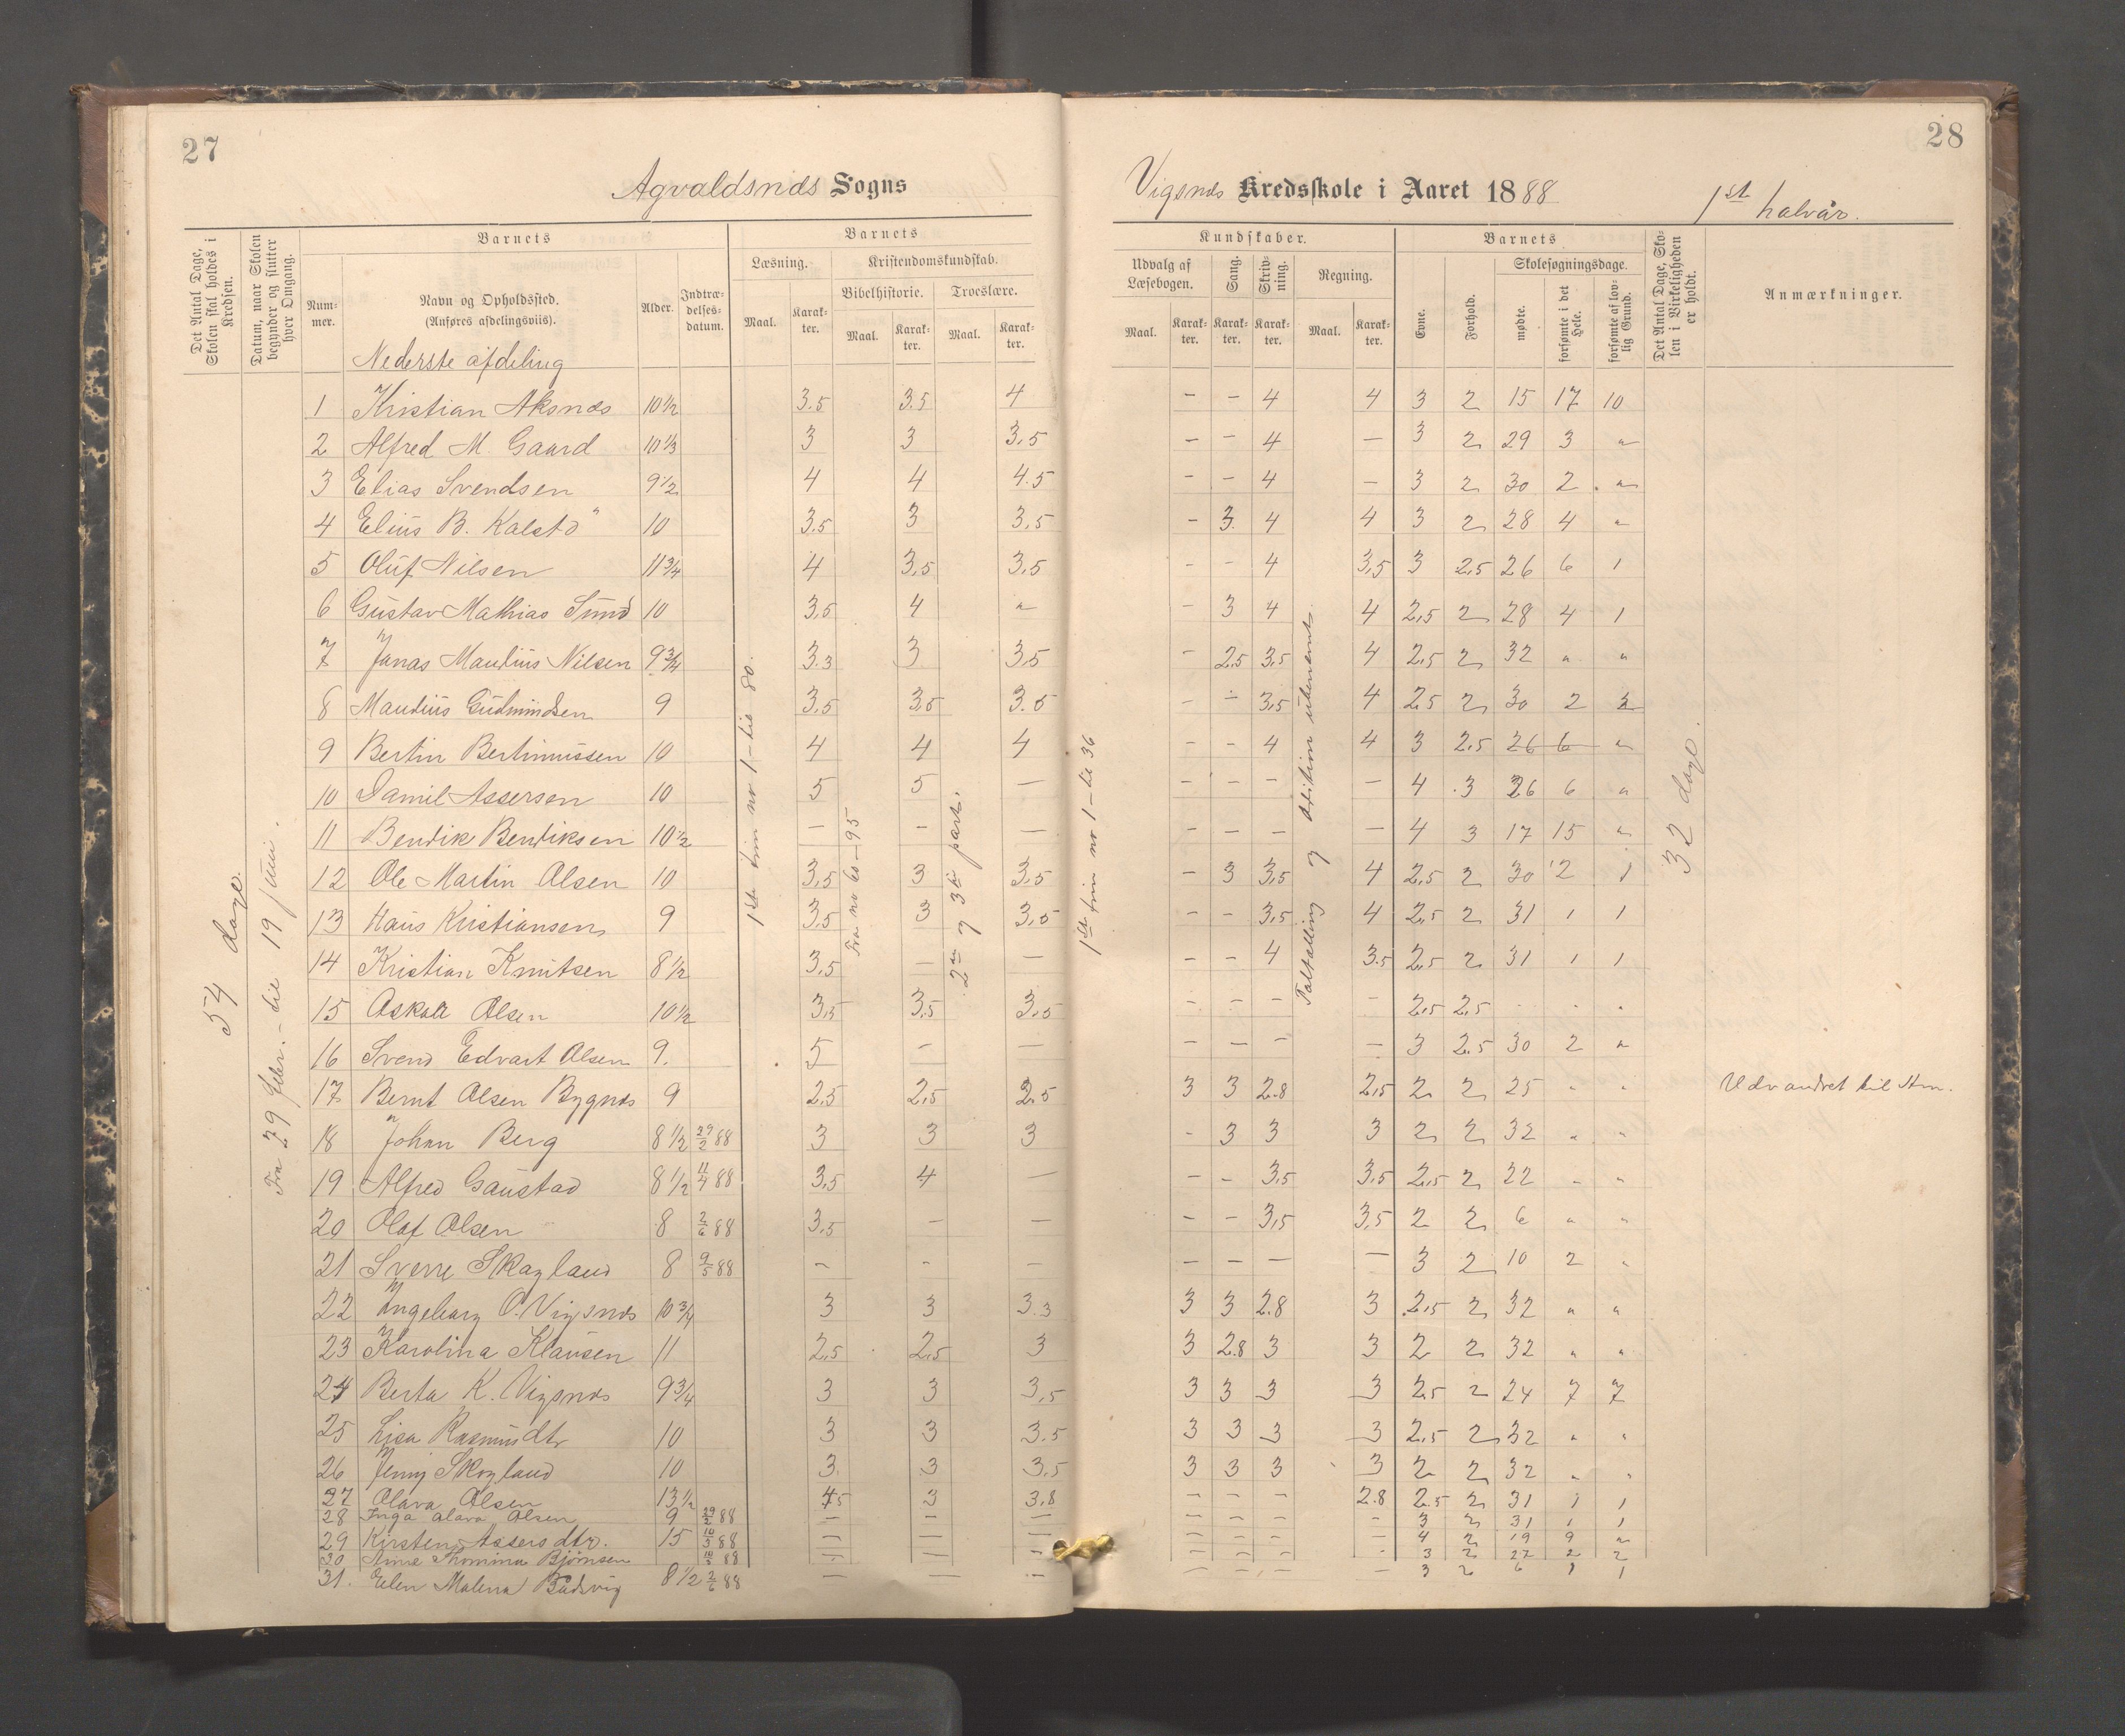 27
28
Agvaldsnds Sogns
Vigsnds Kredsskole i Aaret 1888
1st halvår.
Det Antal Dage, Skolen skal holdes i Kredsen.
Datum, naar Skolen begynder og slutter hver Omgang.
Barnets
Nummer.
Navn og Opholdssted.
(Anføres afdelingsviis).
Alder.
Indtrædelsesdatum.
Barnets
Læsning.
Maal.
Karakter.
Kristendomskundskab.
Bibelhistorie.
Maal.
Karakter.
Troeslære.
Maal.
Karakter.
Kundskaber.
Udvalg af Læsebogen.
Maal.
Karakter.
Sang.
Karakter.
Skrivning.
Karakter.
Regning.
Maal.
Karakter.
Barnets
Evne.
Forhold.
Skolesøgningsdage.
mødte.
forsømte i det Hele.
forsømte af lovlig Grund.
Det Antal Dage, Skolen i Virkeligheden er holdt.
Anmærkninger.
Nederste afdeling
54 dage.
Fra 29 febr. - til 19 juni.
1ste trin no 1 - til 80.
Fra no 60 - 95
2den og 3die part.
1ste trin no 1 - til 36
Taltælling og Addition udenent.
32 dage.
1 Kristian Aksnds 10 1/2 3.5 3.5 4 - - 4 4 3 2 15 17 10
2 Alfred M. Gaard 10 1/3 3 3 3.5 - - 4 - 3 2 29 3 "
3 Elias Svendsen 9 1/2 4 4 4.5 - - 4 - 3 2 30 2 "
4 Elius B. Kalstö 10 3.5 3 3.5 - 3 4 4 3 2 28 4 "
5 Oluf Nilsen 11 3/4 4 3.5 3.5 - - 4 3,5 3 2,5 26 6 1
6 Gustav Mathias Sund 10 3,5 4 " - 3 4 4 2,5 2 28 4 1
7 Jonas Maudius Nilsen 9 3/4 3.3 3 3.5 - 2.5 3.5 4 2,5 2 32 " "
8 Maudius Gudmundsen 9 3,5 3,5 3.5 - - 3,5 4 2.5 2 30 2 2
9 Bertin Bertinussen 10 4 4 4 - - 4 4 3 2.5 26 6 "
10 Daniel Assersen 10 5 5 - - - - - 4 3 26 6 "
11 Bendik Bendiksen 10 1/2 - - - - - - - 4 3 17 15 "
12 Ole Martin Olsen 10 3,5 3 3.5 - 3 3,5 4 2,5 2 30 2 1
13 Hans Kristiansen 9 3,5 3 3,5 - - 3,5 4 2,5 2 31 1 1
14 Kristian Knutsen 8 1/2 3,5 - - - - 4 3.5 2,5 2 31 1 1
15 Askall Olsen 10 1/2 3,5 3,5 3,5 - - - - 2,5 2,5 - - -
16 Svend Edvart Olsen 9. 5 - - - - - - 3 2.5 30 2 "
17 Bernt Olsen Bygnds 9 2,5 2,5 2.5 3 3 2.8 2,5 2 2 25 " " Udvandret til Am.
18 Johan Berg 8 1/2 29/2 88 3 3 3 - 3 3 3 2 2 32 " "
19 Alfred Gaustad 8 1/2 11/4 88 3,5 4 - - - 3,5 3,5 2,5 2 22 " "
20 Olaf Olsen 8 2/6 88 3,5 - - - - 3,5 3,5 2 2 6 " "
21 Sverre Skogland 8 9/5 88 - - - - - - - 3 2 10 2 "
22 Ingeborg O. Vigsnds 10 3/4 3 3 3.3 3 3 2.8 3 2,5 2 32 " "
23 Karolina Klausen 11 2,5 2,5 3 3 2.8 3 3 2 2 32 " "
24 Berta K. Vigsnds 9 3/4 3 3 3,5 3 3 3 3 2.5 2 24 7 7
25 Lisa Rasmusdtr 10 3 3 3.5 3 3 3 3 2,5 2 32 " "
26 Jenny Skogland 10 3. 3 3.5 3 3 3 3 2 2 32 " "
27 Olava Olsen 13 1/2 4,5 3 3,8 - - - 2.8 2.5 2 31 1 1
28 Inga Alava Olsen 9 29/2 88 - - - - - - - 3 2 31 1 1
29 Kirsten Assersdtr. 15 10/3 88 - - - - - - - 4 2 19 9 "
30 Anne Thomina Bjørnsen 10/3 88 - - - - - - - 3 2 27 2 2
31. Elen Malena Bådsvig 8 1/2 2/6 88 - - - - - - - 3 2 6 1 1